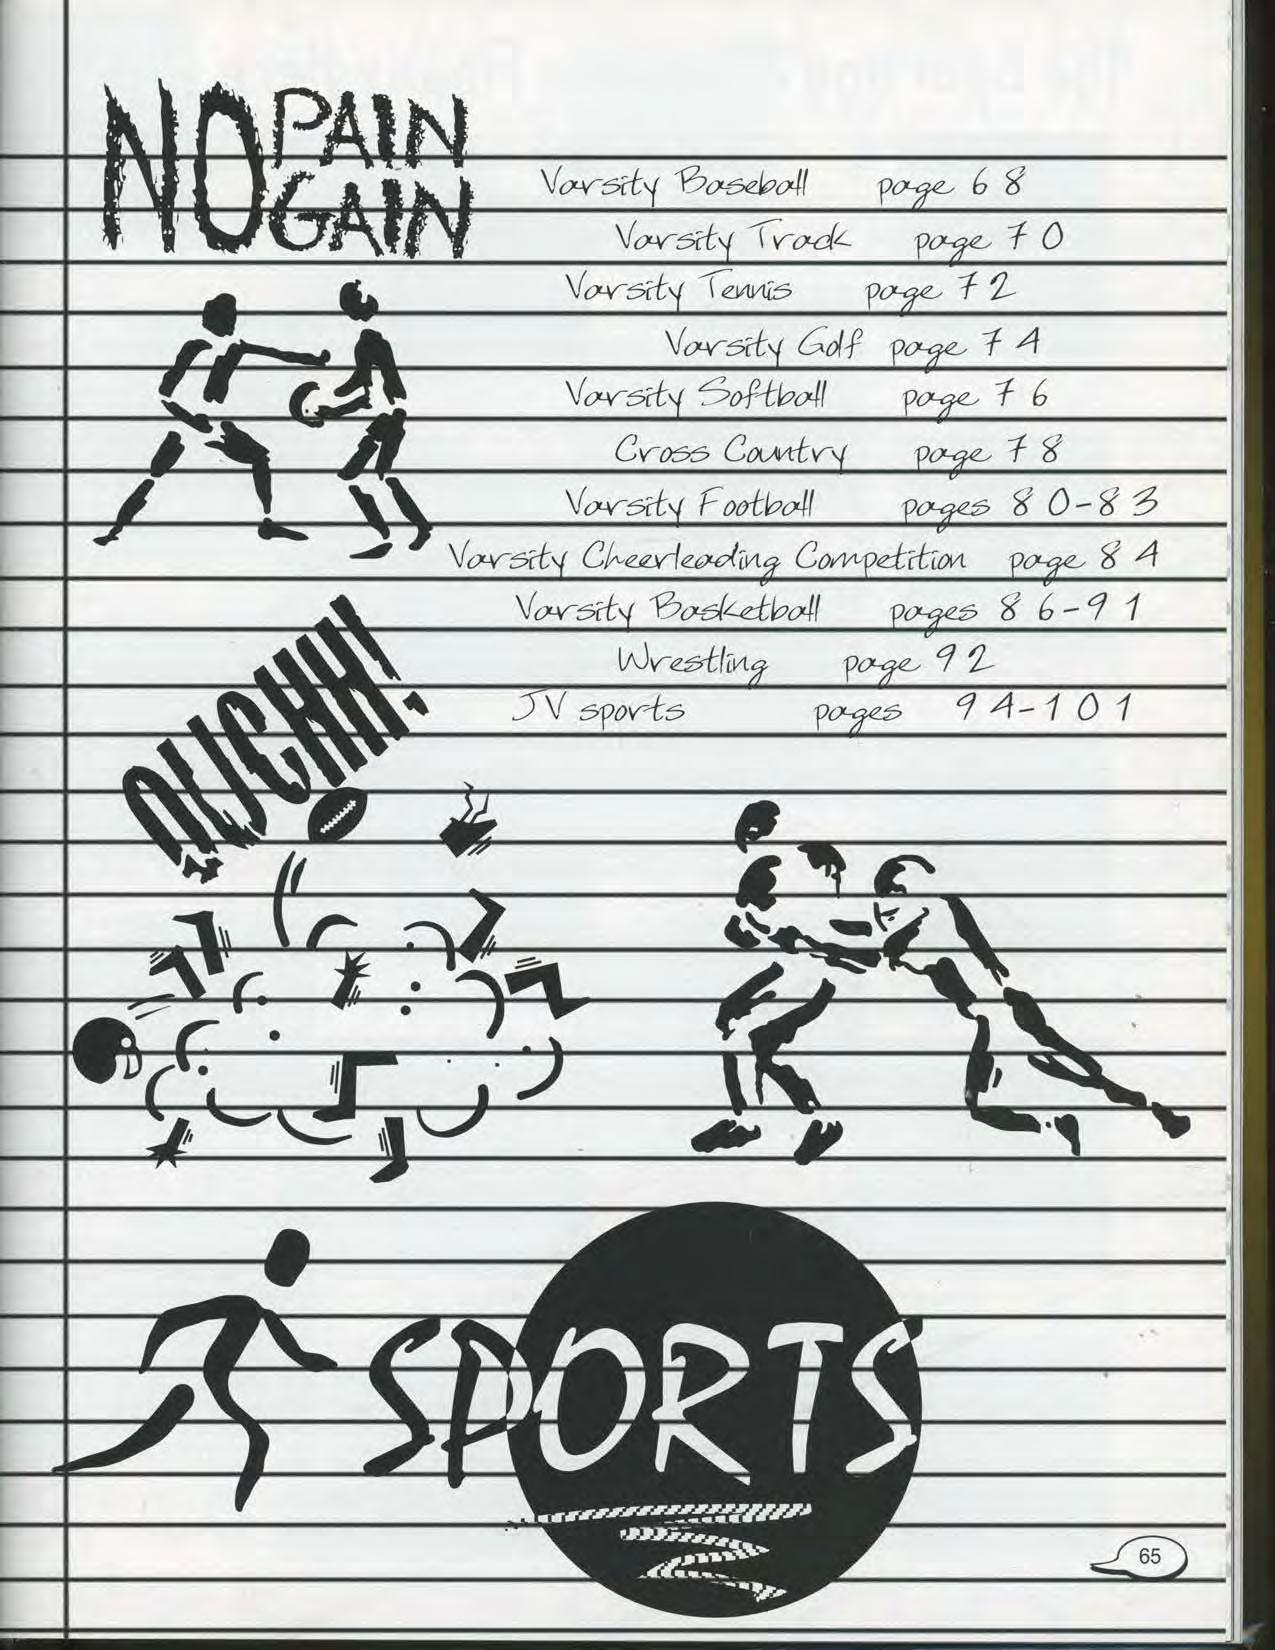 NO PAIN
GAIN
Varsity Baseball page 68
Varsity Track page 70
Varsity Tennis page 72
Varsity Golf page 74
Varsity Softball page 76
Cross Country page 78
Varsity Football pages 80-83
Varsity Cheerleading Competition page 84
Varsity Basketball pages 86-91
Wrestling page 92
JV sports pages 94-101
OUCHH!
SPORTS
65